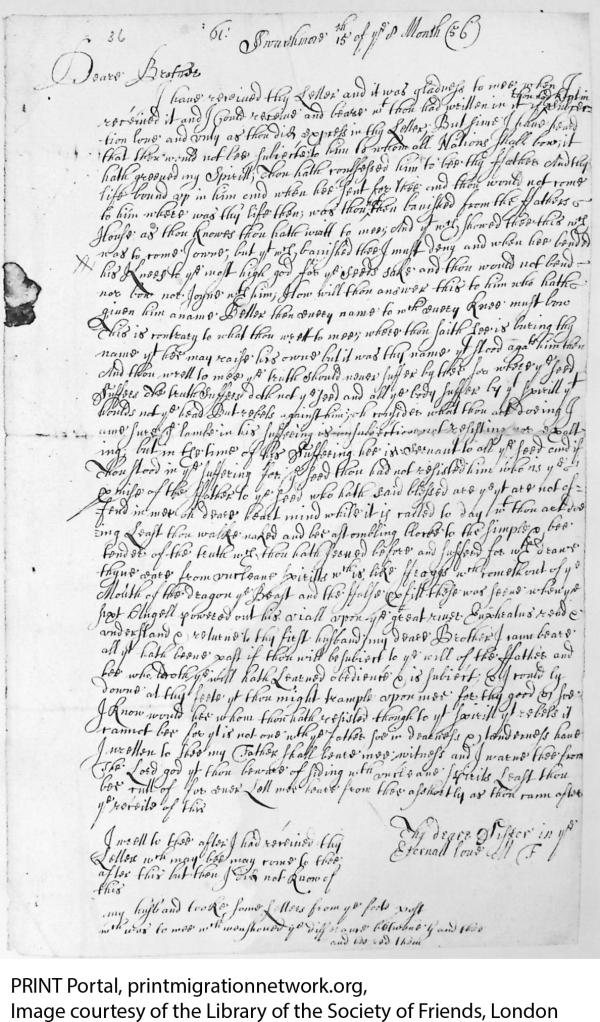 36 61:
Swarthmore 15th of ye 8 Month (56)
Deare Brother
I have received thy Letter and it was gladness to mee when I
received it and I Could receive and beare wt thou had written in it
tion love and unity as thou did express in thy Letter; But since I have heard
that thou would not bee subjecte to him to whom all Nations shall bow; it
hath greived my spirit; Thou hath confessed him to bee the ffather And thy
life bound up in him and when hee sent for thee and thou would not come
to him where was thy life then; was thou then banished from the ffathers
House; as thou knowes thou hath writt to mee; And yt wch showed thee this
was to come I owne; but yt wch banished thee I must deny and when hee bended
his Knees to ye most high god for ye seeds sake and thou would not bend
nor bow nor Joyne wth him; How will thou answer this to him who hath
given him a name Better then every name to wch every Knee must bow
This is contrary to what thou writt to mee; where thou saith hee is buring thy
name yt hee may raise his owne but it was thy name yt stood agat him then
And thou writt to mee ye truth should never suffer by thee for where ye seed
Suffers the truth suffers doth not ye seed and all ye body suffer by yt spirit yt
houlds not ye head But rebels against him; oh consider what thou art doeing I
ame sure ye lambe in his suffering is in subiection not resisting nor exalt
ing, but in the time of his Suffering hee is servant to all ye seed and if
Thou stood in ye suffering for ye seed thou had not resisted him who is ye
promise of the ffather to ye seed who hath said blessed are ye yt are not of
fend in mee oh deare heart mind while it is called to day wt thou art doe
ing Least thou walke naked and bee a stombling blocke to the simple & bee
tender of the truth wch thou hath served before and suffered for wch drawe
thyne eare from uncleane spirits wch is like ffroggs wch cometh out of ye
Mouth of the dragon ye Beast and the ffalse pffitt these was seene when ye
sixt Angell powered out his viall upon ye great river Euphrates read &
understand & returne to thy first husband; my deare Brother I cann beare
all yt hath beene past if thou will be subject to ye will of the ffather and
hee who doth ye will hath Learned obedience & is subiect; & I could ly
downe at thy feete yt thou might trample upon mee for thy good &
I Know would bee whom thou hath resisted though to yt spirit yt rebels it
cannot bee for yt is not one wth ye father soe in dearness & tenderness have
I written to thee my Father shall beare mee witness and I warne thee from
The Lord god yt thou beware of siding wth uncleane spirits Least thou
bee cutt of for ever Lett mee heare from thee as shortly as thou cann after
ye receite of this
Thy deare Sister in ye
Eternall Love M F
I writt to thee after I had received thy
Letter wch may bee may come to thee
after this but then I did not know of
this
my husband tooke some Letters from ye foote post
wch was to mee wch menshoned ye differance betweene and thee
and hee red them
PRINT Portal, printmigrationnetwork.org,
Image courtesy of the Library of the Society of Friends, London